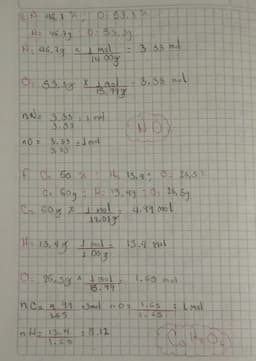 N: 46.7 % ; O: 53.3 %
N: 46.7g ; O: 53.3g
N: 46.7g x 1 mol = 3.33 mol
14.00g
O: 53.3g x 1 mol = 3.33 mol
15.99g
nN= 3.33 = 1 mol
3.33
nO = 3.33 = 1 mol
3.33
NO
F. C: 60 % ; H: 13.4 ; O: 26,5 %
C: 60g ; H: 13,4g ; O: 26,5g
C: 60g x 1 mol = 4.99 mol
12.01g
H: 13.4g 1 mol = 13.4 mol
1.00g
O: 26.5g x 1 mol : 1.65 mol
15.99
nC= 4.99 =3mol nO= 1.65 = 1 mol
1.65 1.65
nH= 13.4 = 8.12
1.65